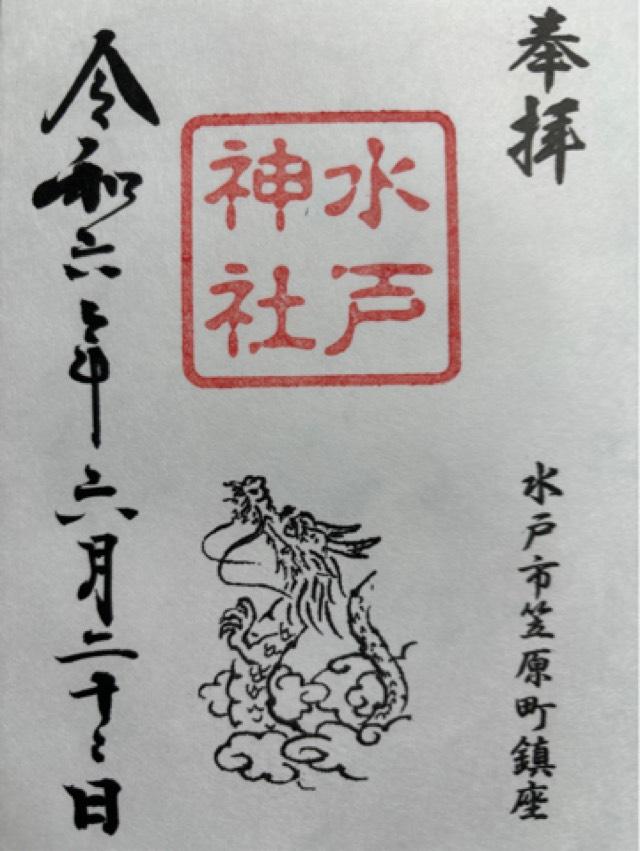 奉拝
水戸市笠原町鎮座
水戸
神社
令和六年六月二十二日